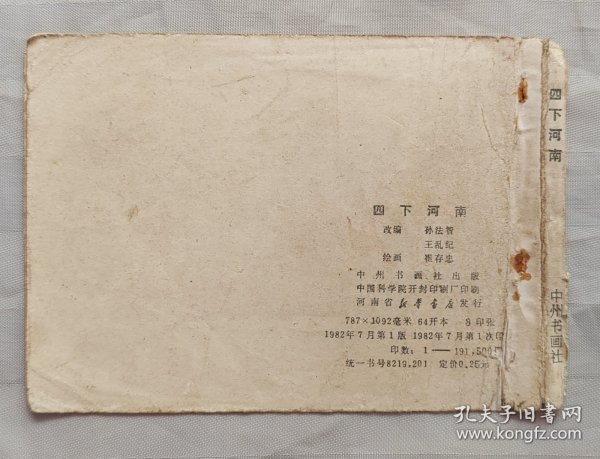 四下河南
改编 孙法智
王乱纪
绘画 崔存忠
中州书画社出版
中国科学院开封印刷厂印刷
河南省新华书店发行
787×1092毫米 64开本 3印张
1982年7月第1版 1982年7月第1次印
印数：1—191,500
统一书号8219.201 定价0.25元
四下河南
中州书画社
孔夫子旧书网
www.kongfz.com